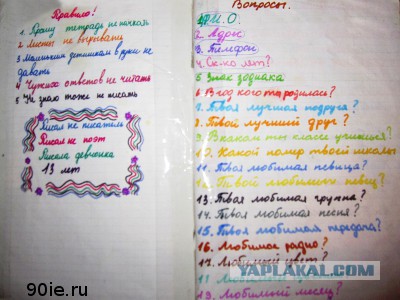 Правило!
1. Душу тетрадь не пачкать
2 Листы не вырывать
3 Маленьким детишкам в руки не
давать
4 Чужих ответов не читать
5 Не знаю тоже не писать
Писал не писатель
Писал не поэт
Писала девчонка
13 лет
Вопросы.
1. Ф.И.О.
2. Адрес
3. Телефон
4. Ск-ко лет?
5. Знак зодиака
6. В год кого ты родилась?
7. Твоя лучшая подруга?
8. Твой лучший друг?
9. В каком ты классе учишься?
10. Какой номер твоей школы
11. Твоя любимая певица?
12. Твой любимый певец?
13. Твоя любимая группа?
14. Твоя любимая песня?
15. Твоя любимая передача?
16. Любимое радио?
17. Любимый цвет?
18. Любимый
19. Любимый месяц?
90ie.ru
YAPLAKAL.COM